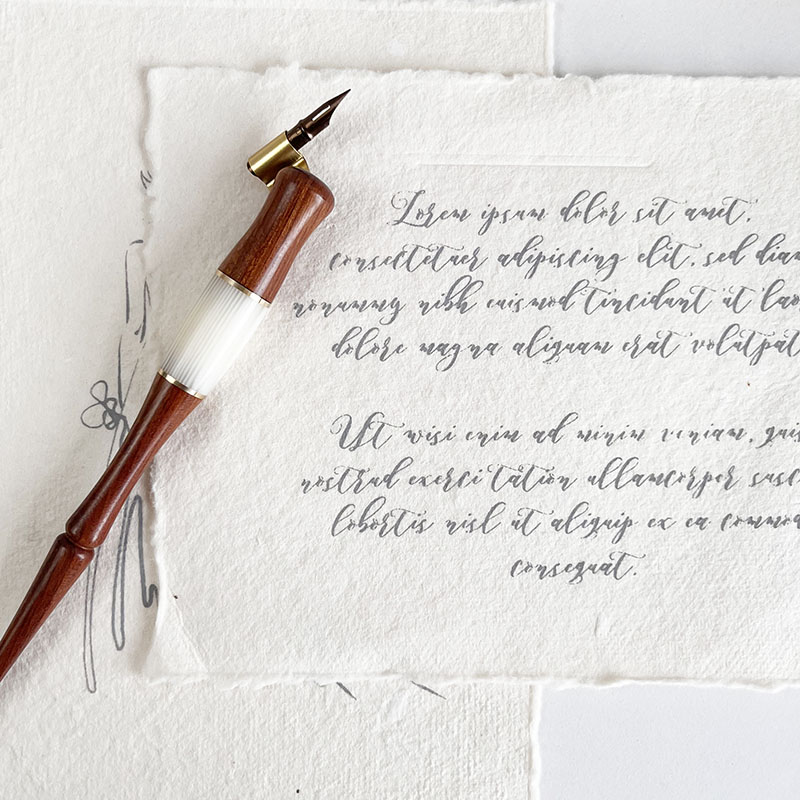 Lorem ipsum dolor sit amet,
consectetuer adipiscing elit, sed diam
nonummy nibh euismod tincidunt ut lao
dolore magna aliquam erat volutpat
Ut wisi enim ad minim veniam, quis
nostrud exerci tation ullamcorper susc
lobortis nisl ut aliquip ex ea commo
consequat.